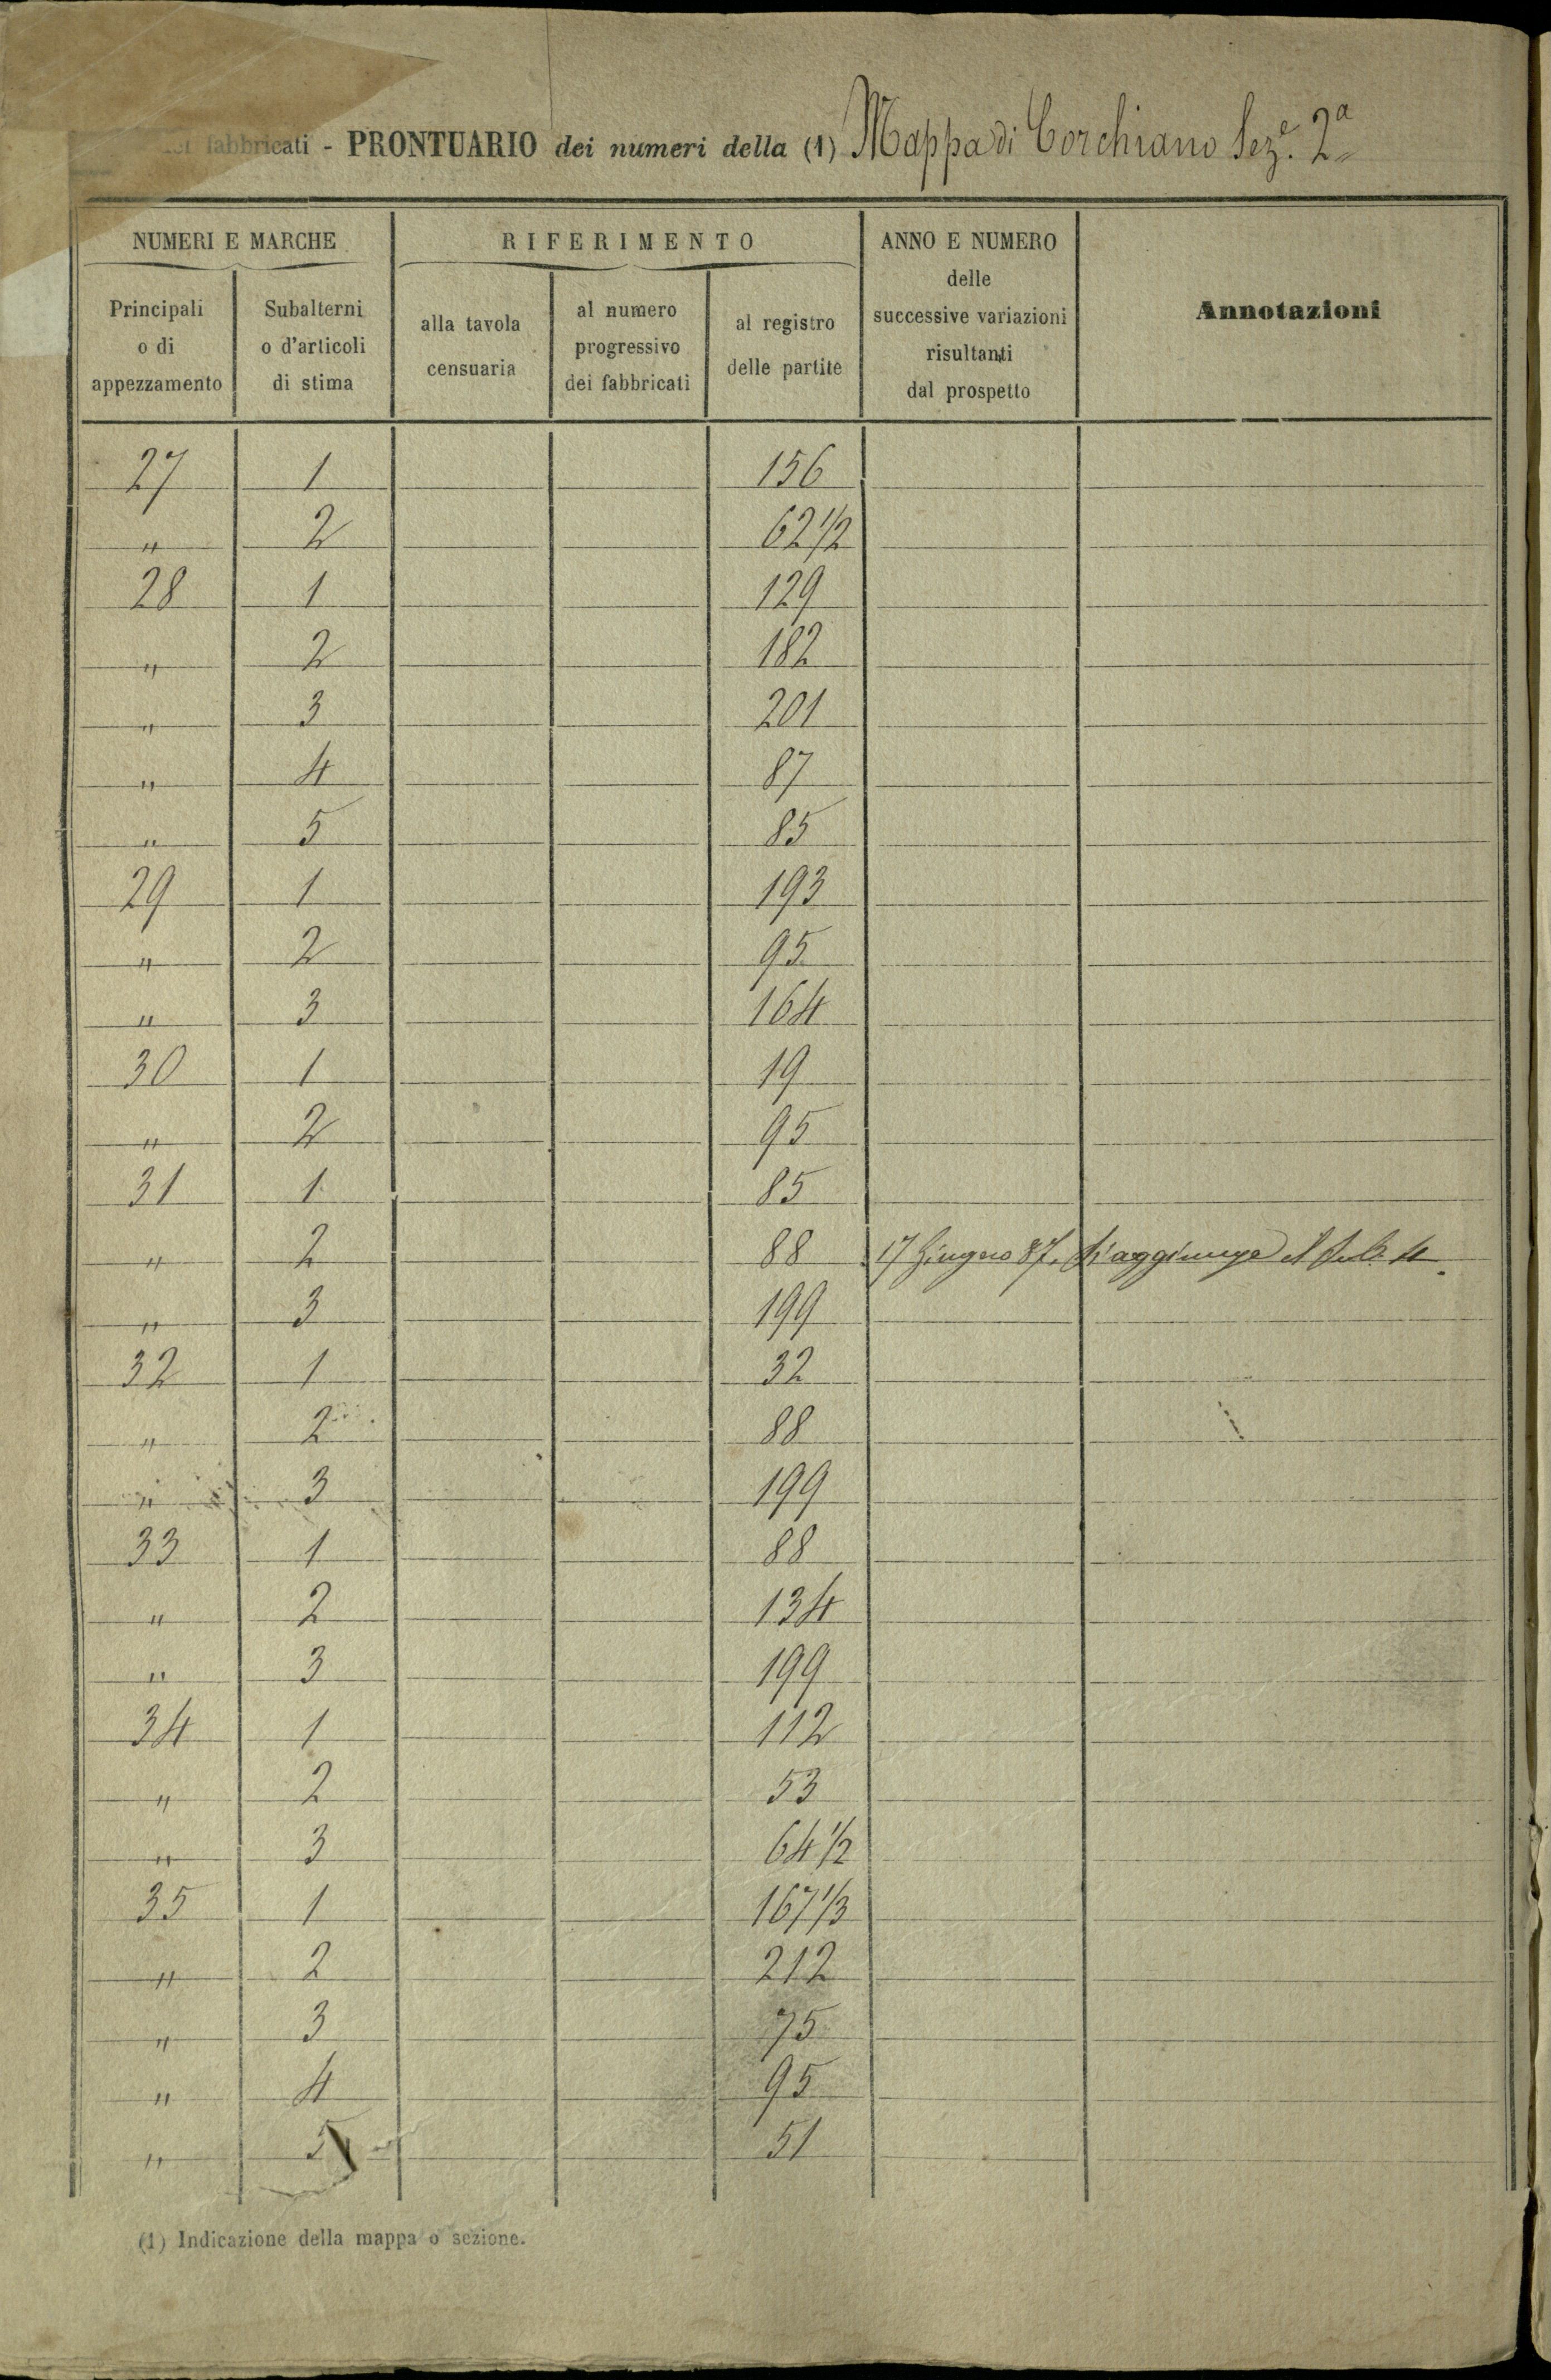 dei fabbricati - PRONTUARIO dei numeri della (1) Mappa di Corchiano Sez.e 2a
NUMERI E MARCHE
RIFERIMENTO
ANNO E NUMERO
delle
successive variazioni
risultanti
dal prospetto
Annotazioni
Principali
o di
appezzamento
Subalterni
o d'articoli
di stima
alla tavola
censuaria
al numero
progressivo
dei fabbricati
al registro
delle partite
27 1 156
" 2 62 1/2
28 1 129
" 2 182
" 3 201
" 4 87
" 5 85
29 1 193
" 2 95
" 3 164
30 1 19
" 2 95
31 1 85
" 2 88 17 Giugno 87. Si aggiunge il Sub. 4
" 3 199
32 1 32
" 2 88
" 3 199
33 1 88
" 2 134
" 3 199
34 1 112
" 2 53
" 3 64 1/2
35 1 167 1/3
" 2 212
" 3 75
" 4 95
" 5 51
(1) Indicazione della mappa o sezione.